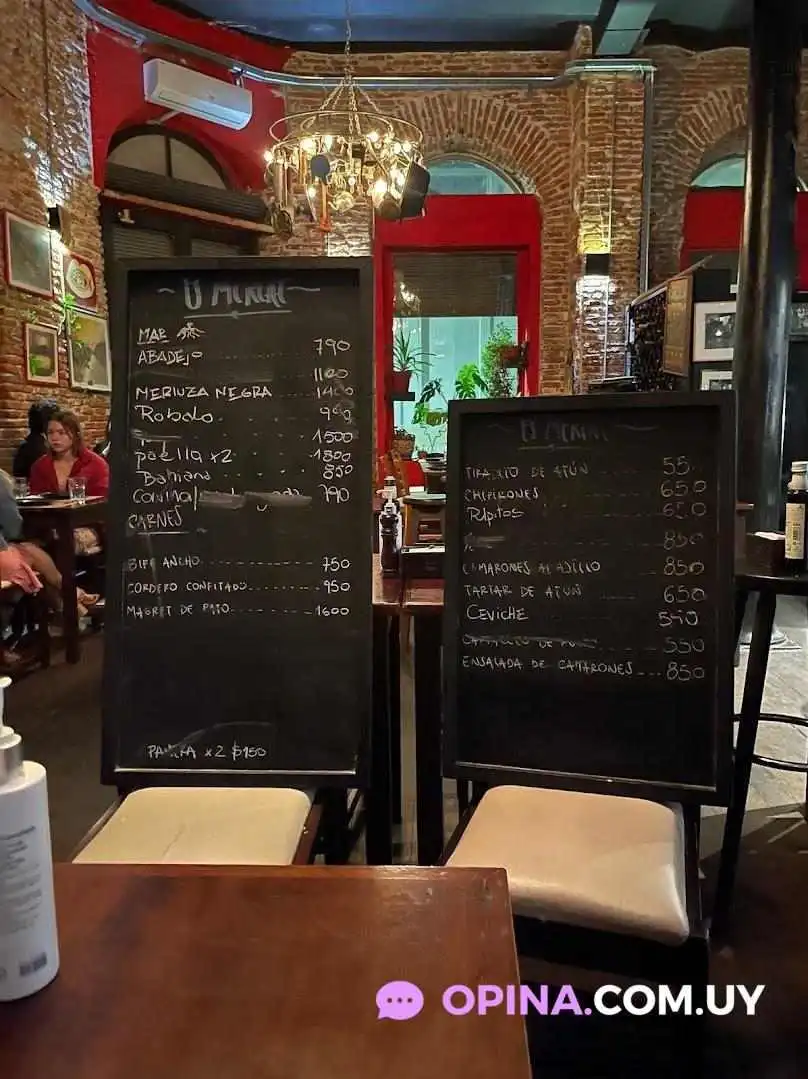 MAR
ABADEJO 790
1100
MERLUZA NEGRA 1400
Robalo
1500
paella x2 1800
Bahiana 850
790
CARNES
BIFE ANCHO 750
CORDERO CONFITADO 950
MAGRET DE PATO 1600
x2 $150
TIRADITO DE ATÚN 55
CHIPIRONES 650
Rapitas 650
850
CAMARONES AL AJILLO 850
TARTAR DE ATUN 650
CEVICHE 540
550
ENSALADA DE CAMARONES 850
OPINA.COM.UY